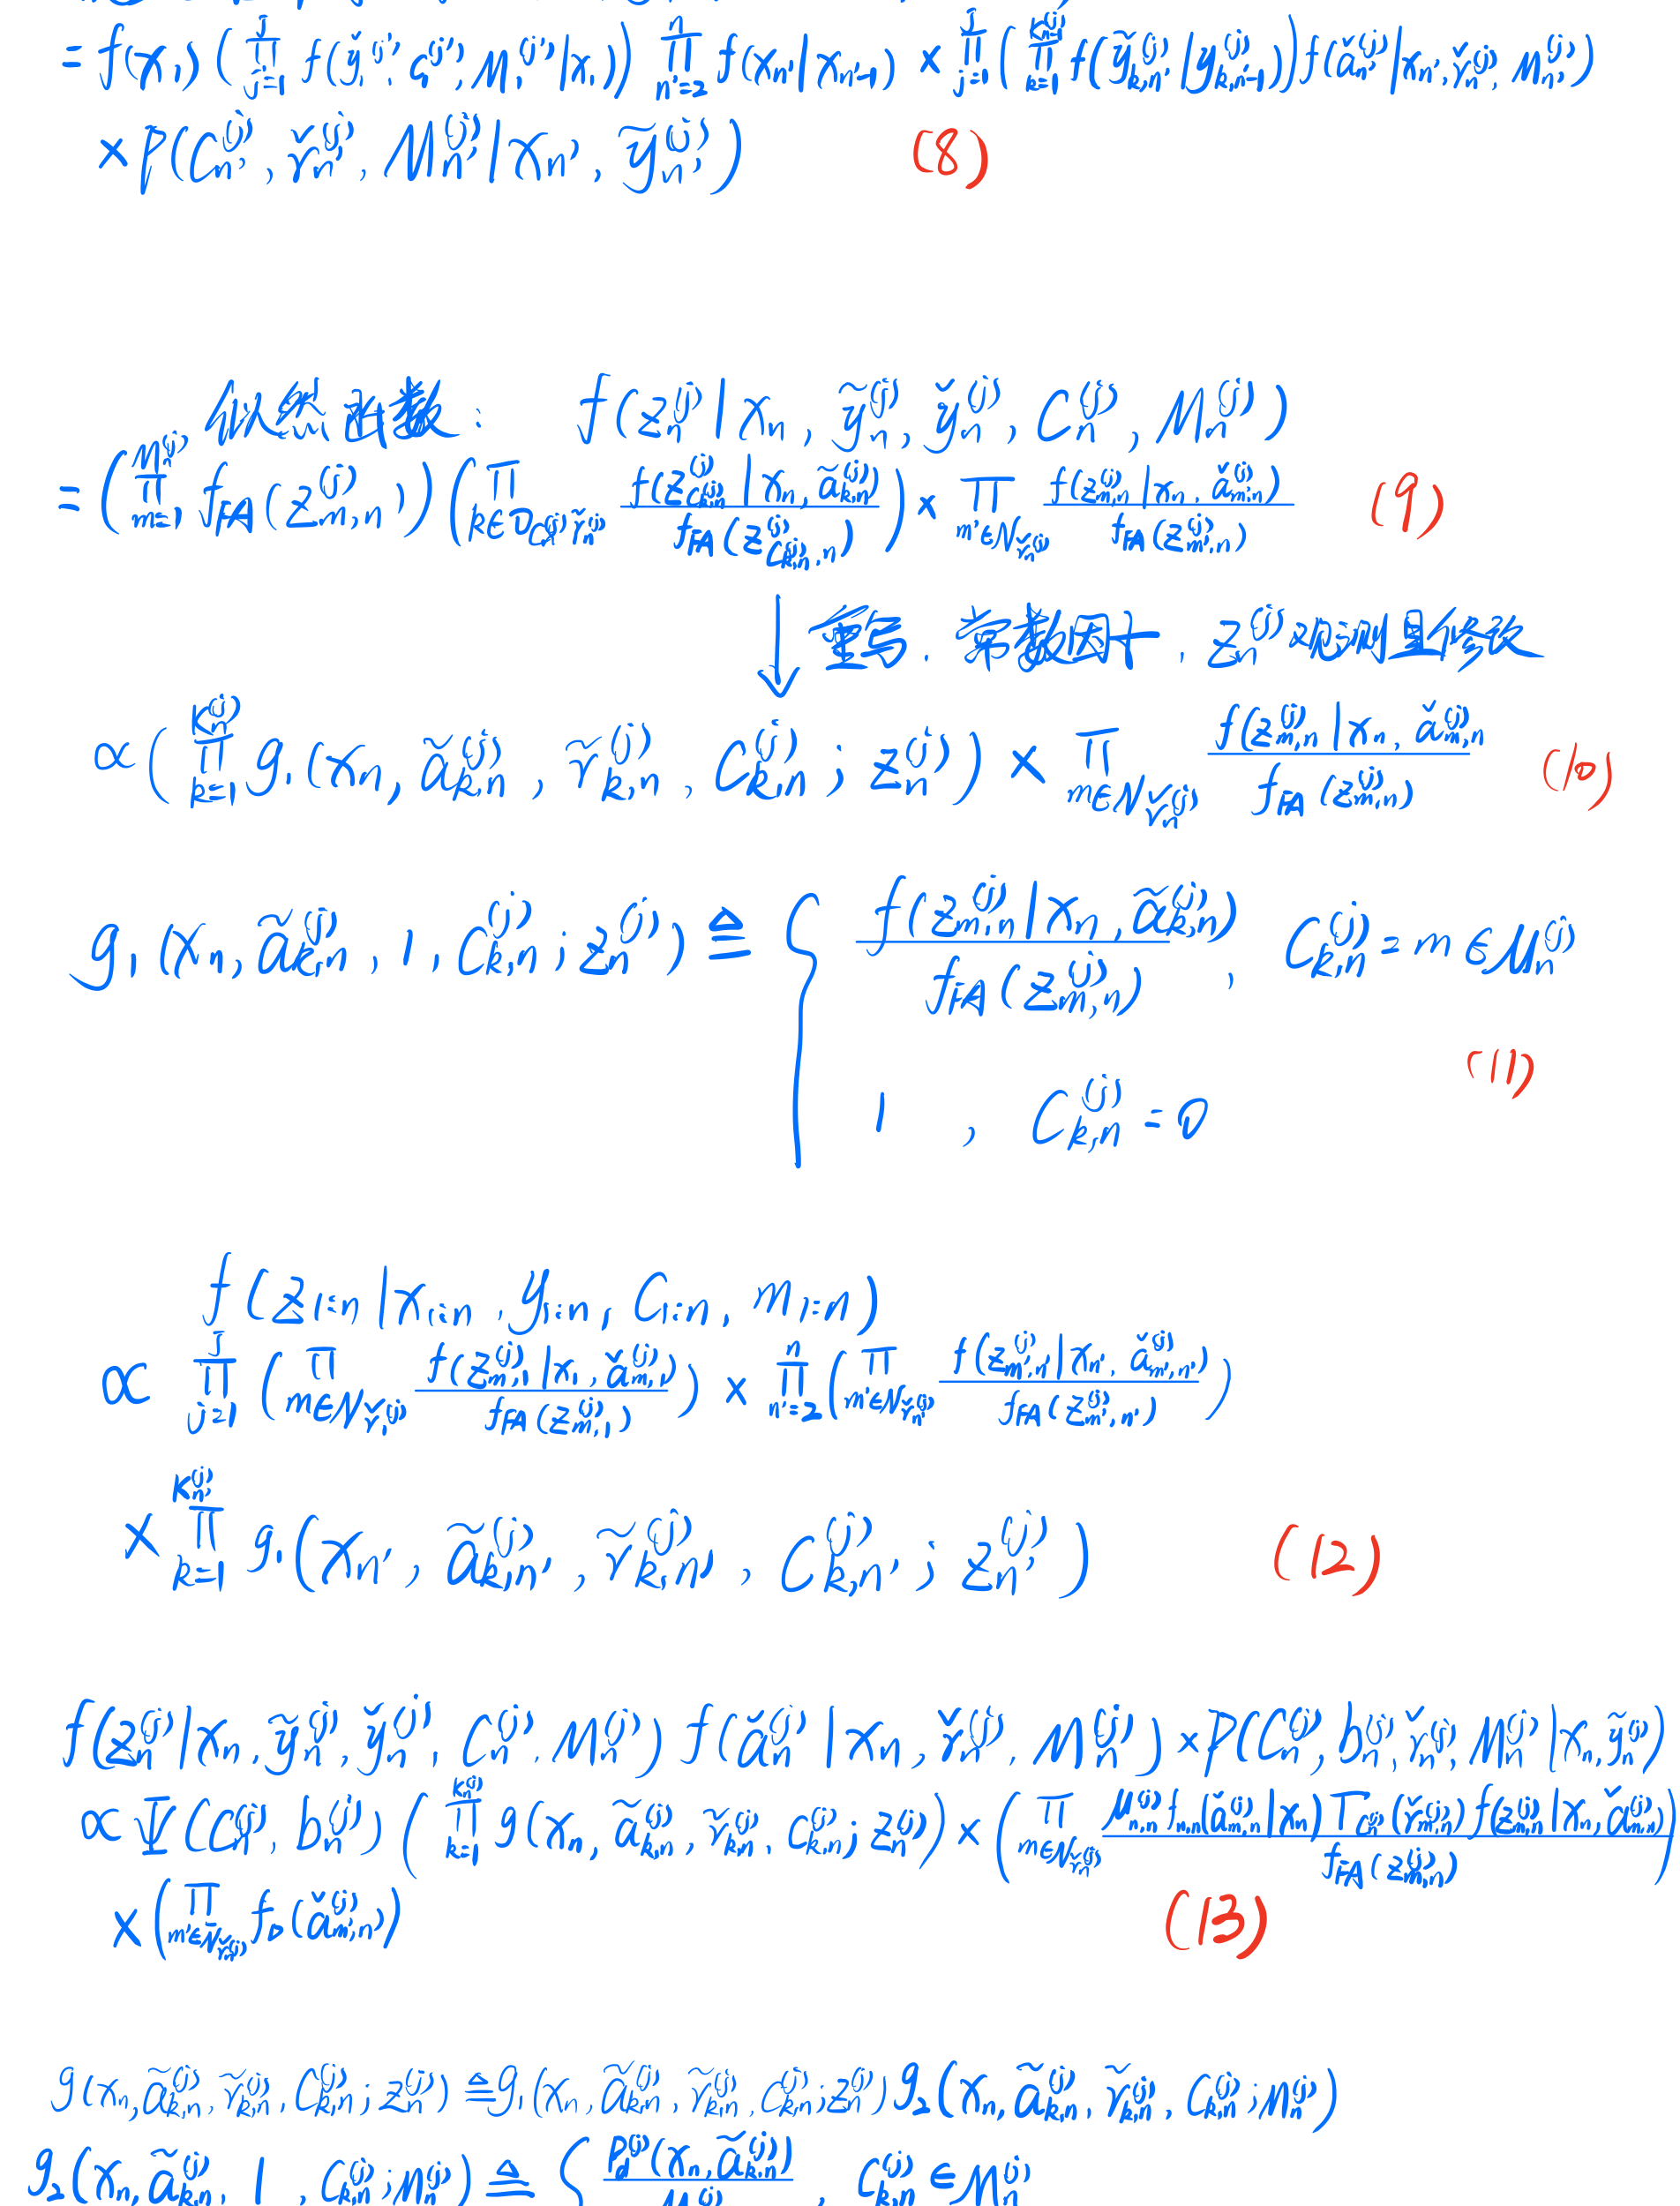 = f(x₁) (∏_{j'=1}^{J} f(y̌₁^{(j')}, c₁^{(j')}, M₁^{(j')}|x₁)) ∏_{n'=2}^{n} f(x_{n'}|x_{n'-1}) × ∏_{j=1}^{J} (∏_{k=1}^{K_{n'-1}^{(j)}} f(ỹ_{k,n'}^{(j)}|y_{k,n'-1}^{(j)})) f(ǎ_{n'}^{(j)}|x_{n'}, ř_{n'}^{(j)}, M_{n'}^{(j)})
× P(C_{n'}^{(j)}, ř_{n'}^{(j)}, M_{n'}^{(j)}|x_{n'}, ỹ_{n'}^{(j)}) (8)
似然函数: f(z_n^{(j)}|x_n, ỹ_n^{(j)}, y̌_n^{(j)}, C_n^{(j)}, M_n^{(j)})
= (∏_{m=1}^{M_n^{(j)}} f_{FA}(z_{m,n}^{(j)})) (∏_{k∈D_{C_n^{(j)}, r̃_n^{(j)}}} f(z_{C_{k,n}^{(j)},n}^{(j)}|x_n, ã_{k,n}^{(j)}) / f_{FA}(z_{C_{k,n}^{(j)},n}^{(j)})) × ∏_{m'∈N_{ř_n^{(j)}}} f(z_{m',n}^{(j)}|x_n, ǎ_{m',n}^{(j)}) / f_{FA}(z_{m',n}^{(j)}) (9)
↓ 重写. 常数因子, z_n^{(j)} 观测且修改
∝ (∏_{k=1}^{K_n^{(j)}} g₁(x_n, ã_{k,n}^{(j)}, r̃_{k,n}^{(j)}, C_{k,n}^{(j)}; z_n^{(j)})) × ∏_{m∈N_{ř_n^{(j)}}} f(z_{m,n}^{(j)}|x_n, ǎ_{m,n}^{(j)} / f_{FA}(z_{m,n}^{(j)}) (10)
g₁(x_n, ã_{k,n}^{(j)}, 1, C_{k,n}^{(j)}; z_n^{(j)}) ≜ { f(z_{m,n}^{(j)}|x_n, ã_{k,n}^{(j)}) / f_{FA}(z_{m,n}^{(j)}), C_{k,n}^{(j)} = m ∈ M_n^{(j)}
(11)
1, C_{k,n}^{(j)} = 0
f(z_{1:n}|x_{1:n}, y_{1:n}, C_{1:n}, m_{1:n})
∝ ∏_{j=1}^{J} (∏_{m∈N_{ř₁^{(j)}}} f(z_{m,1}^{(j)}|x₁, ǎ_{m,1}^{(j)}) / f_{FA}(z_{m,1}^{(j)})) × ∏_{n'=2}^{n} (∏_{m'∈N_{ř_{n'}^{(j)}}} f(z_{m',n'}^{(j)}|x_{n'}, ǎ_{m',n'}^{(j)}) / f_{FA}(z_{m',n'}^{(j)}))
× ∏_{k=1}^{K_{n'}^{(j)}} g₁(x_{n'}, ã_{k,n'}^{(j)}, r̃_{k,n'}^{(j)}, C_{k,n'}^{(j)}; z_{n'}^{(j)}) (12)
f(z_n^{(j)}|x_n, ỹ_n^{(j)}, y̌_n^{(j)}, C_n^{(j)}, M_n^{(j)}) f(ǎ_n^{(j)}|x_n, ř_n^{(j)}, M_n^{(j)}) × P(C_n^{(j)}, b_n^{(j)}, ř_n^{(j)}, M_n^{(j)}|x_n, ỹ_n^{(j)})
∝ Ψ(C_n^{(j)}, b_n^{(j)}) (∏_{k=1}^{K_n^{(j)}} g(x_n, ã_{k,n}^{(j)}, r̃_{k,n}^{(j)}, C_{k,n}^{(j)}; z_n^{(j)})) × (∏_{m∈N_{ř_n^{(j)}}} μ_{n,n}^{(j)} f_{n,n}(ǎ_{m,n}^{(j)}|x_n) Γ_{C_n^{(j)}}(ř_{m,n}^{(j)}) f(z_{m,n}^{(j)}|x_n, ǎ_{m,n}^{(j)}) / f_{FA}(z_{m,n}^{(j)}))
× (∏_{m'∈N̄_{ř_n^{(j)}}} f_D(ǎ_{m',n}^{(j)})) (13)
g(x_n, ã_{k,n}^{(j)}, r̃_{k,n}^{(j)}, C_{k,n}^{(j)}; z_n^{(j)}) ≜ g₁(x_n, ã_{k,n}^{(j)}, r̃_{k,n}^{(j)}, C_{k,n}^{(j)}; z_n^{(j)}) g₂(x_n, ã_{k,n}^{(j)}, r̃_{k,n}^{(j)}, C_{k,n}^{(j)}; M_n^{(j)})
g₂(x_n, ã_{k,n}^{(j)}, 1, C_{k,n}^{(j)}; M_n^{(j)}) ≜ { P_d^{(j)}(x_n, ã_{k,n}^{(j)}) / , C_{k,n}^{(j)} ∈ M_n^{(j)}